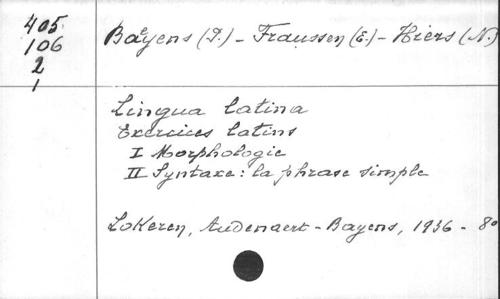 405
106
2
1
Baeyens (J.) - Fraussen (E.) - Hiers (N.)
Lingua latina
Exercices latins
I Morphologie
II Syntaxe: la phrase simple
Lokeren, Audenaert-Bayens, 1936 - 8°